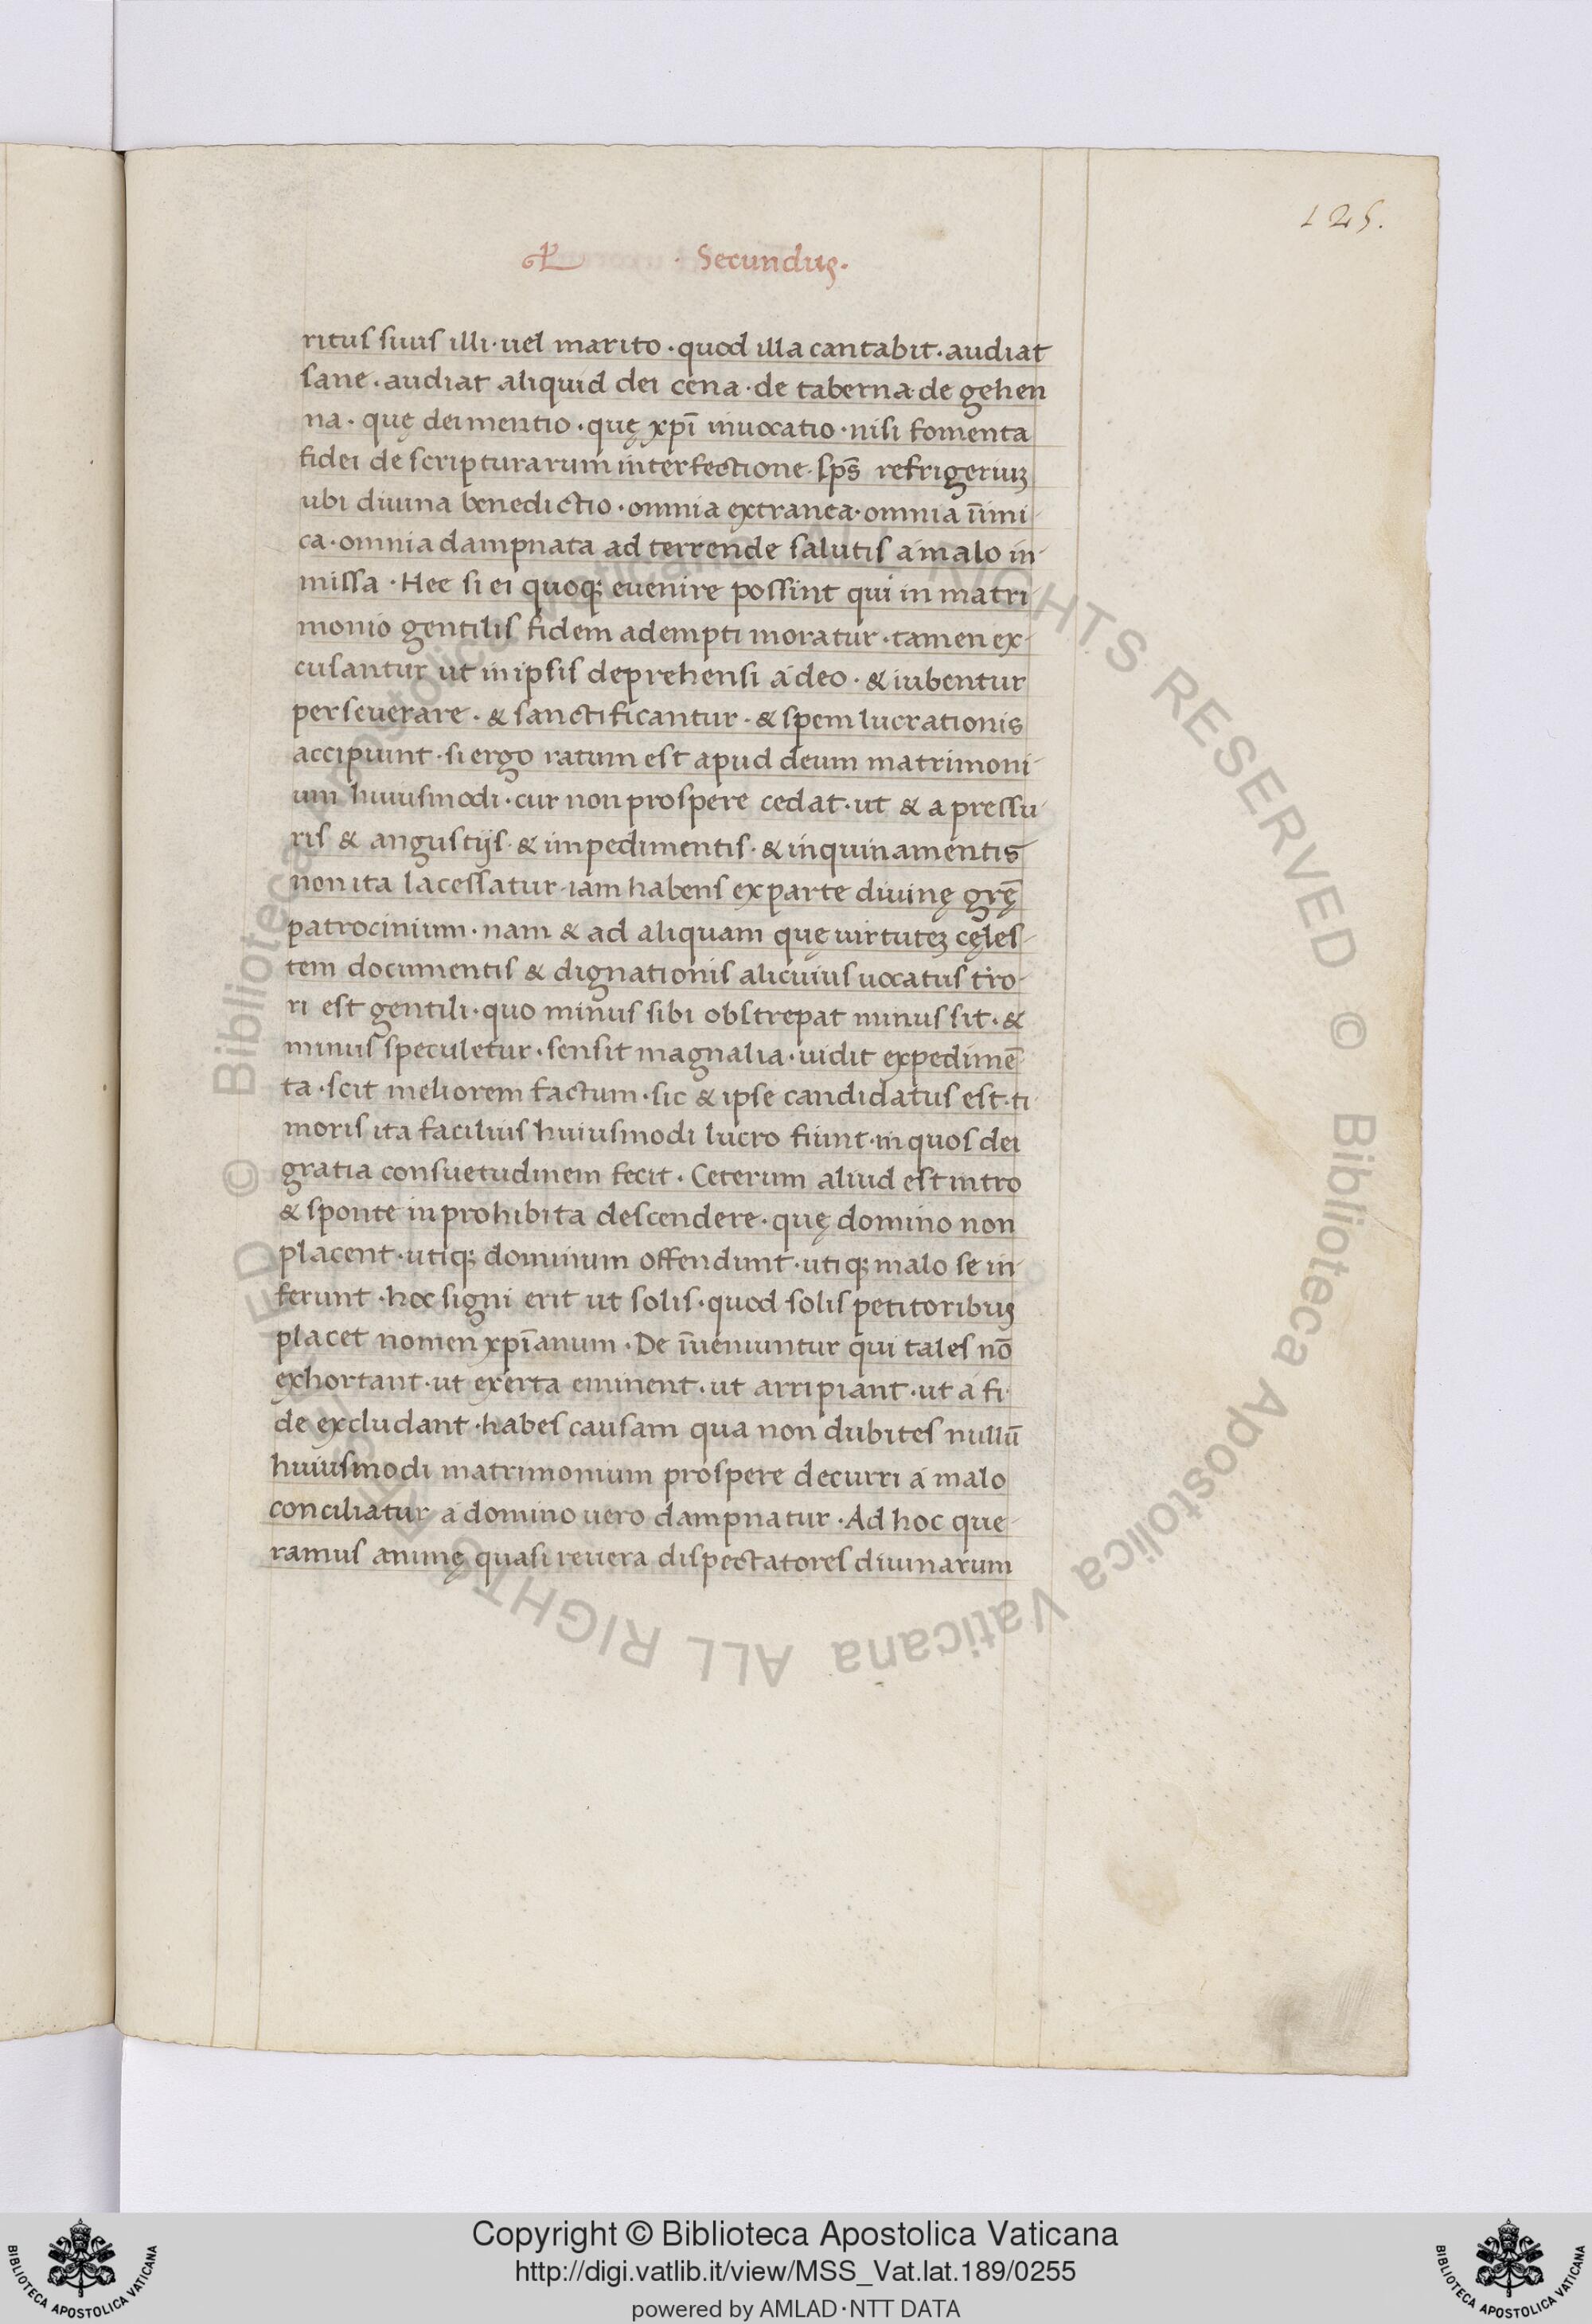 125.
· Secundus.
ritus suus illi · uel marito · quod illa cantabit · audiat
sane · audiat aliquid dei cena · de taberna · de gehen
na · quę dei mentio · quę xpī inuocatio · nisi fomenta
fidei de scripturarum interfectione · sps̄ refrigeriuꝫ
ubi diuina benedictio · omnia extranea · omnia īīmi
ca · omnia dampnata ad terrende salutis a malo in-
missa · Hec si ei quoqꝫ euenire possint qui in matri
monio gentilis fidem adempti moratur · tamen ex-
cusantur ut in ipsis deprehensi a deo · & iubentur
perseuerare · & sanctificantur · & spem lucrationis
accipiunt · si ergo ratum est apud deum matrimoni-
um huiusmodi · cur non prospere cedat · ut & a pressu-
ris & angustijs · & impedimentis · & inquinamentis
non ita lacessatur · iam habens ex parte diuinę grę̄
patrocinium · nam & ad aliquam quę uirtuteꝫ cęles-
tem documentis & dignationis alicuius uocatus tro-
ri est gentili · quo minus sibi obstrepat minus sit · &
minus speculetur · sensit magnalia · uidit expedimē-
ta · scit meliorem factum · sic & ipse candidatus est · ti
moris ita facilius huiusmodi lucro fiunt · in quos dei
gratia consuetudinem fecit · Ceterum aliud est intro
& sponte in prohibita descendere · quę domino non
placent · utiqꝫ dominum offendunt · utiqꝫ malo se in-
ferunt · hoc signi erit ut solis · quod solis petitoribus
placet nomen xpīanum · De īueniuntur qui tales nō
exhortant · ut exerta eminent · ut arripiant · ut a fi-
de excludant · habes causam qua non dubites nullū
huiusmodi matrimonium prospere decurri a malo
conciliatur a domino uero dampnatur · Ad hoc que-
ramus animę quasi reuera dispectatores diuinarum
© Biblioteca Apostolica Vaticana ALL RIGHTS RESERVED © Biblioteca Apostolica Vaticana ALL RIGHTS RESERVED
Copyright © Biblioteca Apostolica Vaticana
http://digi.vatlib.it/view/MSS_Vat.lat.189/0255
powered by AMLAD·NTT DATA
BIBLIOTECA APOSTOLICA VATICANA
BIBLIOTECA APOSTOLICA VATICANA